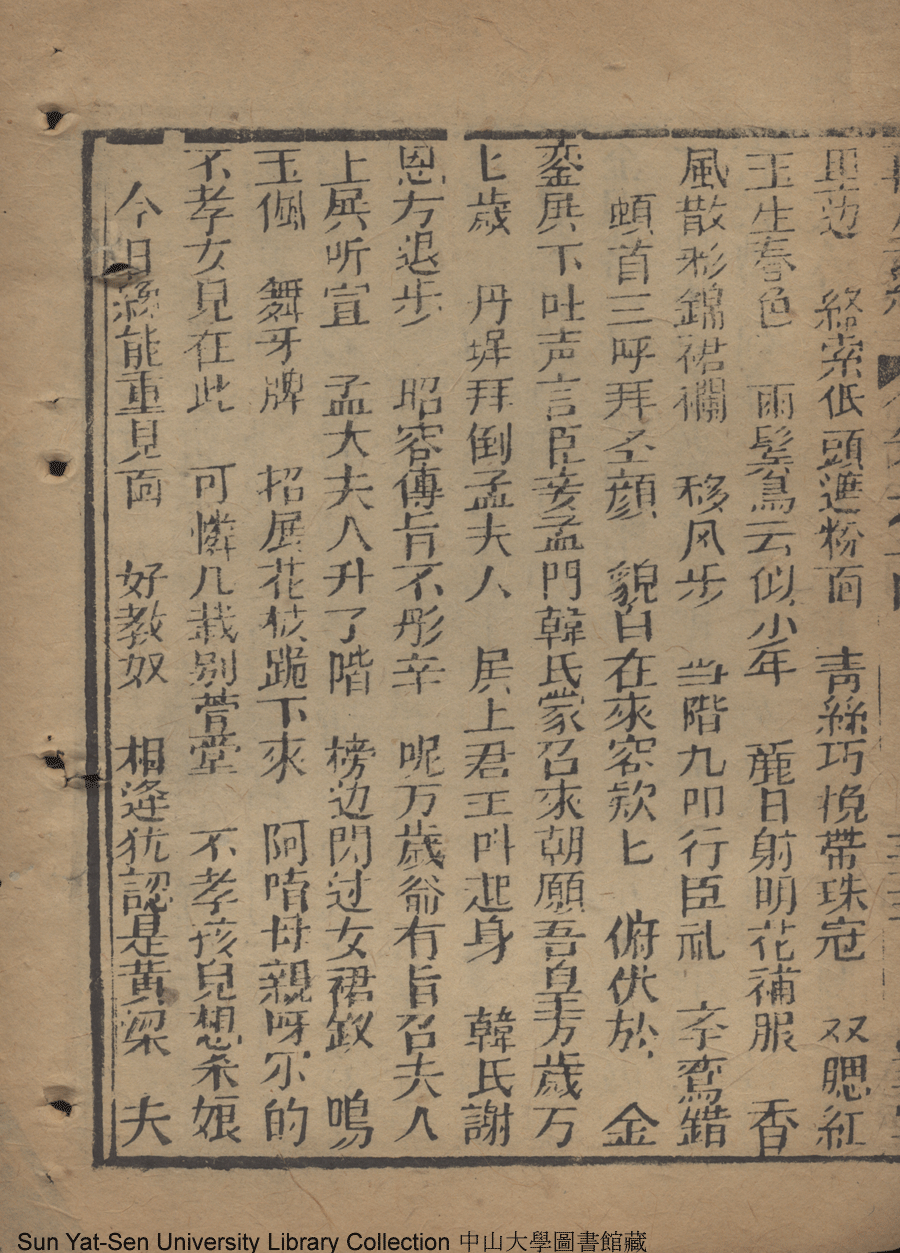 里边 終索低頭進粉面 青絲巧挽帶珠冠 双腮紅
玉生春色 雨髮鴛云似少年 麗日射明花補服 香
風散彩錦裙襴 移风步 当階九叩行臣礼 鸞錯
頓首三呼拜圣顔 貌自在來容欵匕 俯伏於 金
銮展下吐声言臣妾孟門韓氏蒙召來朝願吾皇万歲万
匕歲 丹墀拜倒孟夫人 展上君王叫起身 韓氏謝
恩方退步 昭容傳旨不彤辛 呢万歲爺有旨召夫人
上展听宣 孟大夫人升了階 榜边閃过女裙釵 嗚
玉佩 舞牙牌 招展花枝跪下來 阿唷母親呀尔的
不孝女兒在此 可憐几栽别萱堂 不孝孩兒想杀娘
今日縂能重見面 好教奴 相逢犹認是黄梁 夫
Sun Yat-Sen University Library Collection 中山大學圖書館藏